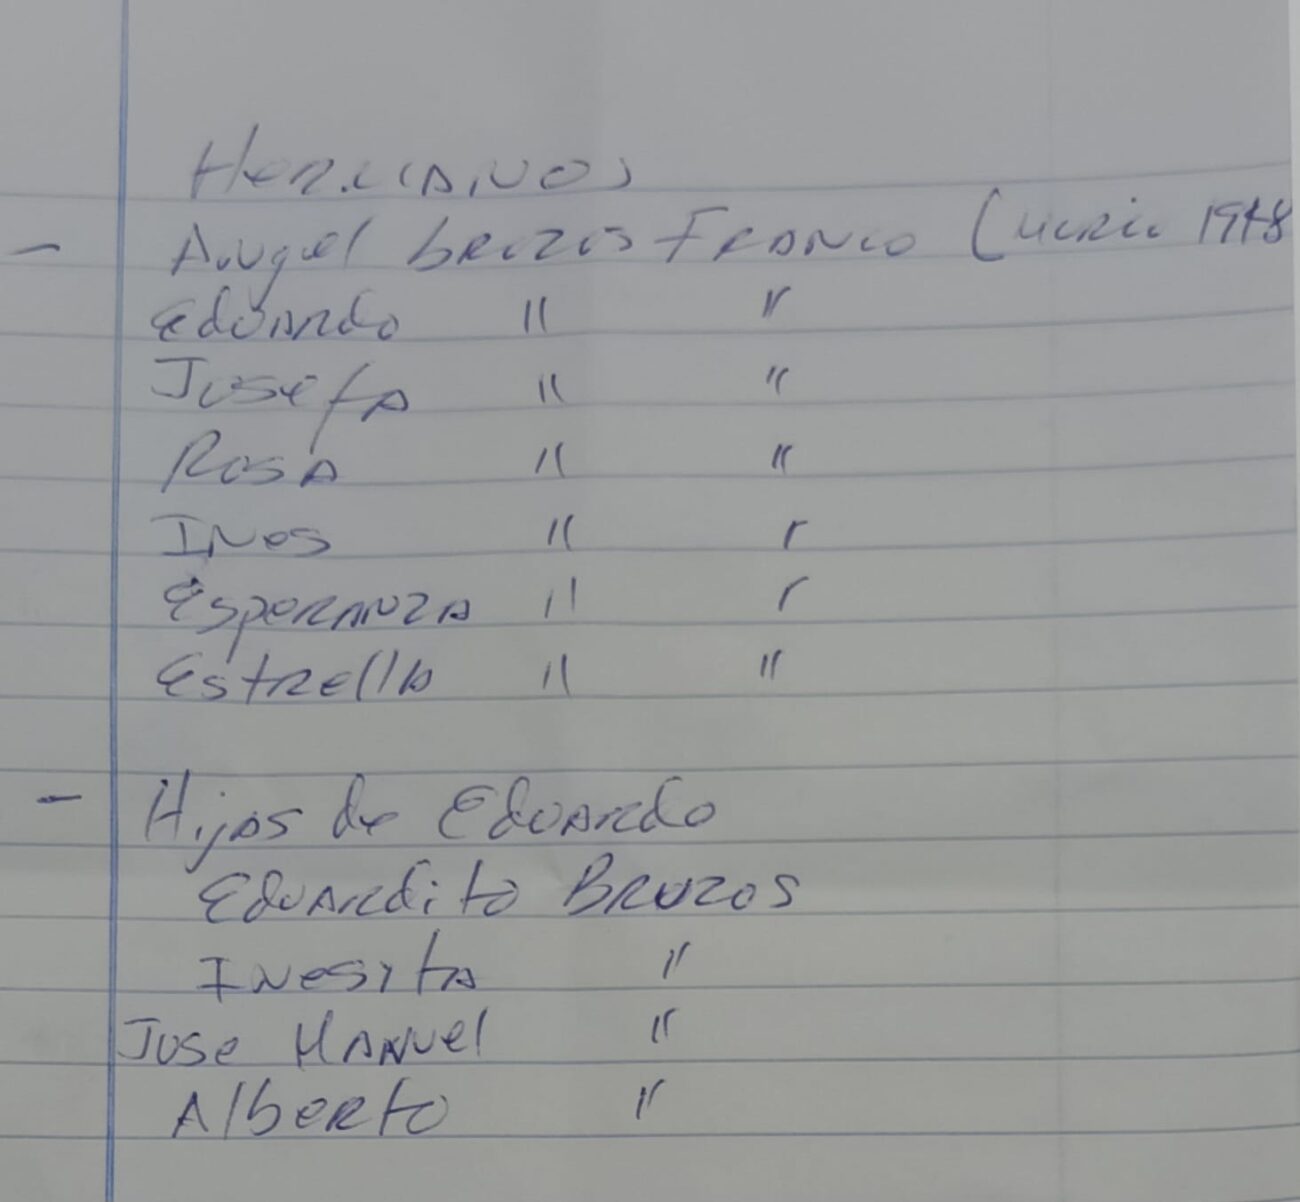 Hermanos
- Angel Bruzos Franco (murio 1948
Eduardo " "
Josefa " "
Rosa " "
Ines " "
Esperanza " "
Estrella " "
- Hijos de Eduardo
Eduardito Bruzos
Inesita "
Jose Manuel "
Alberto "